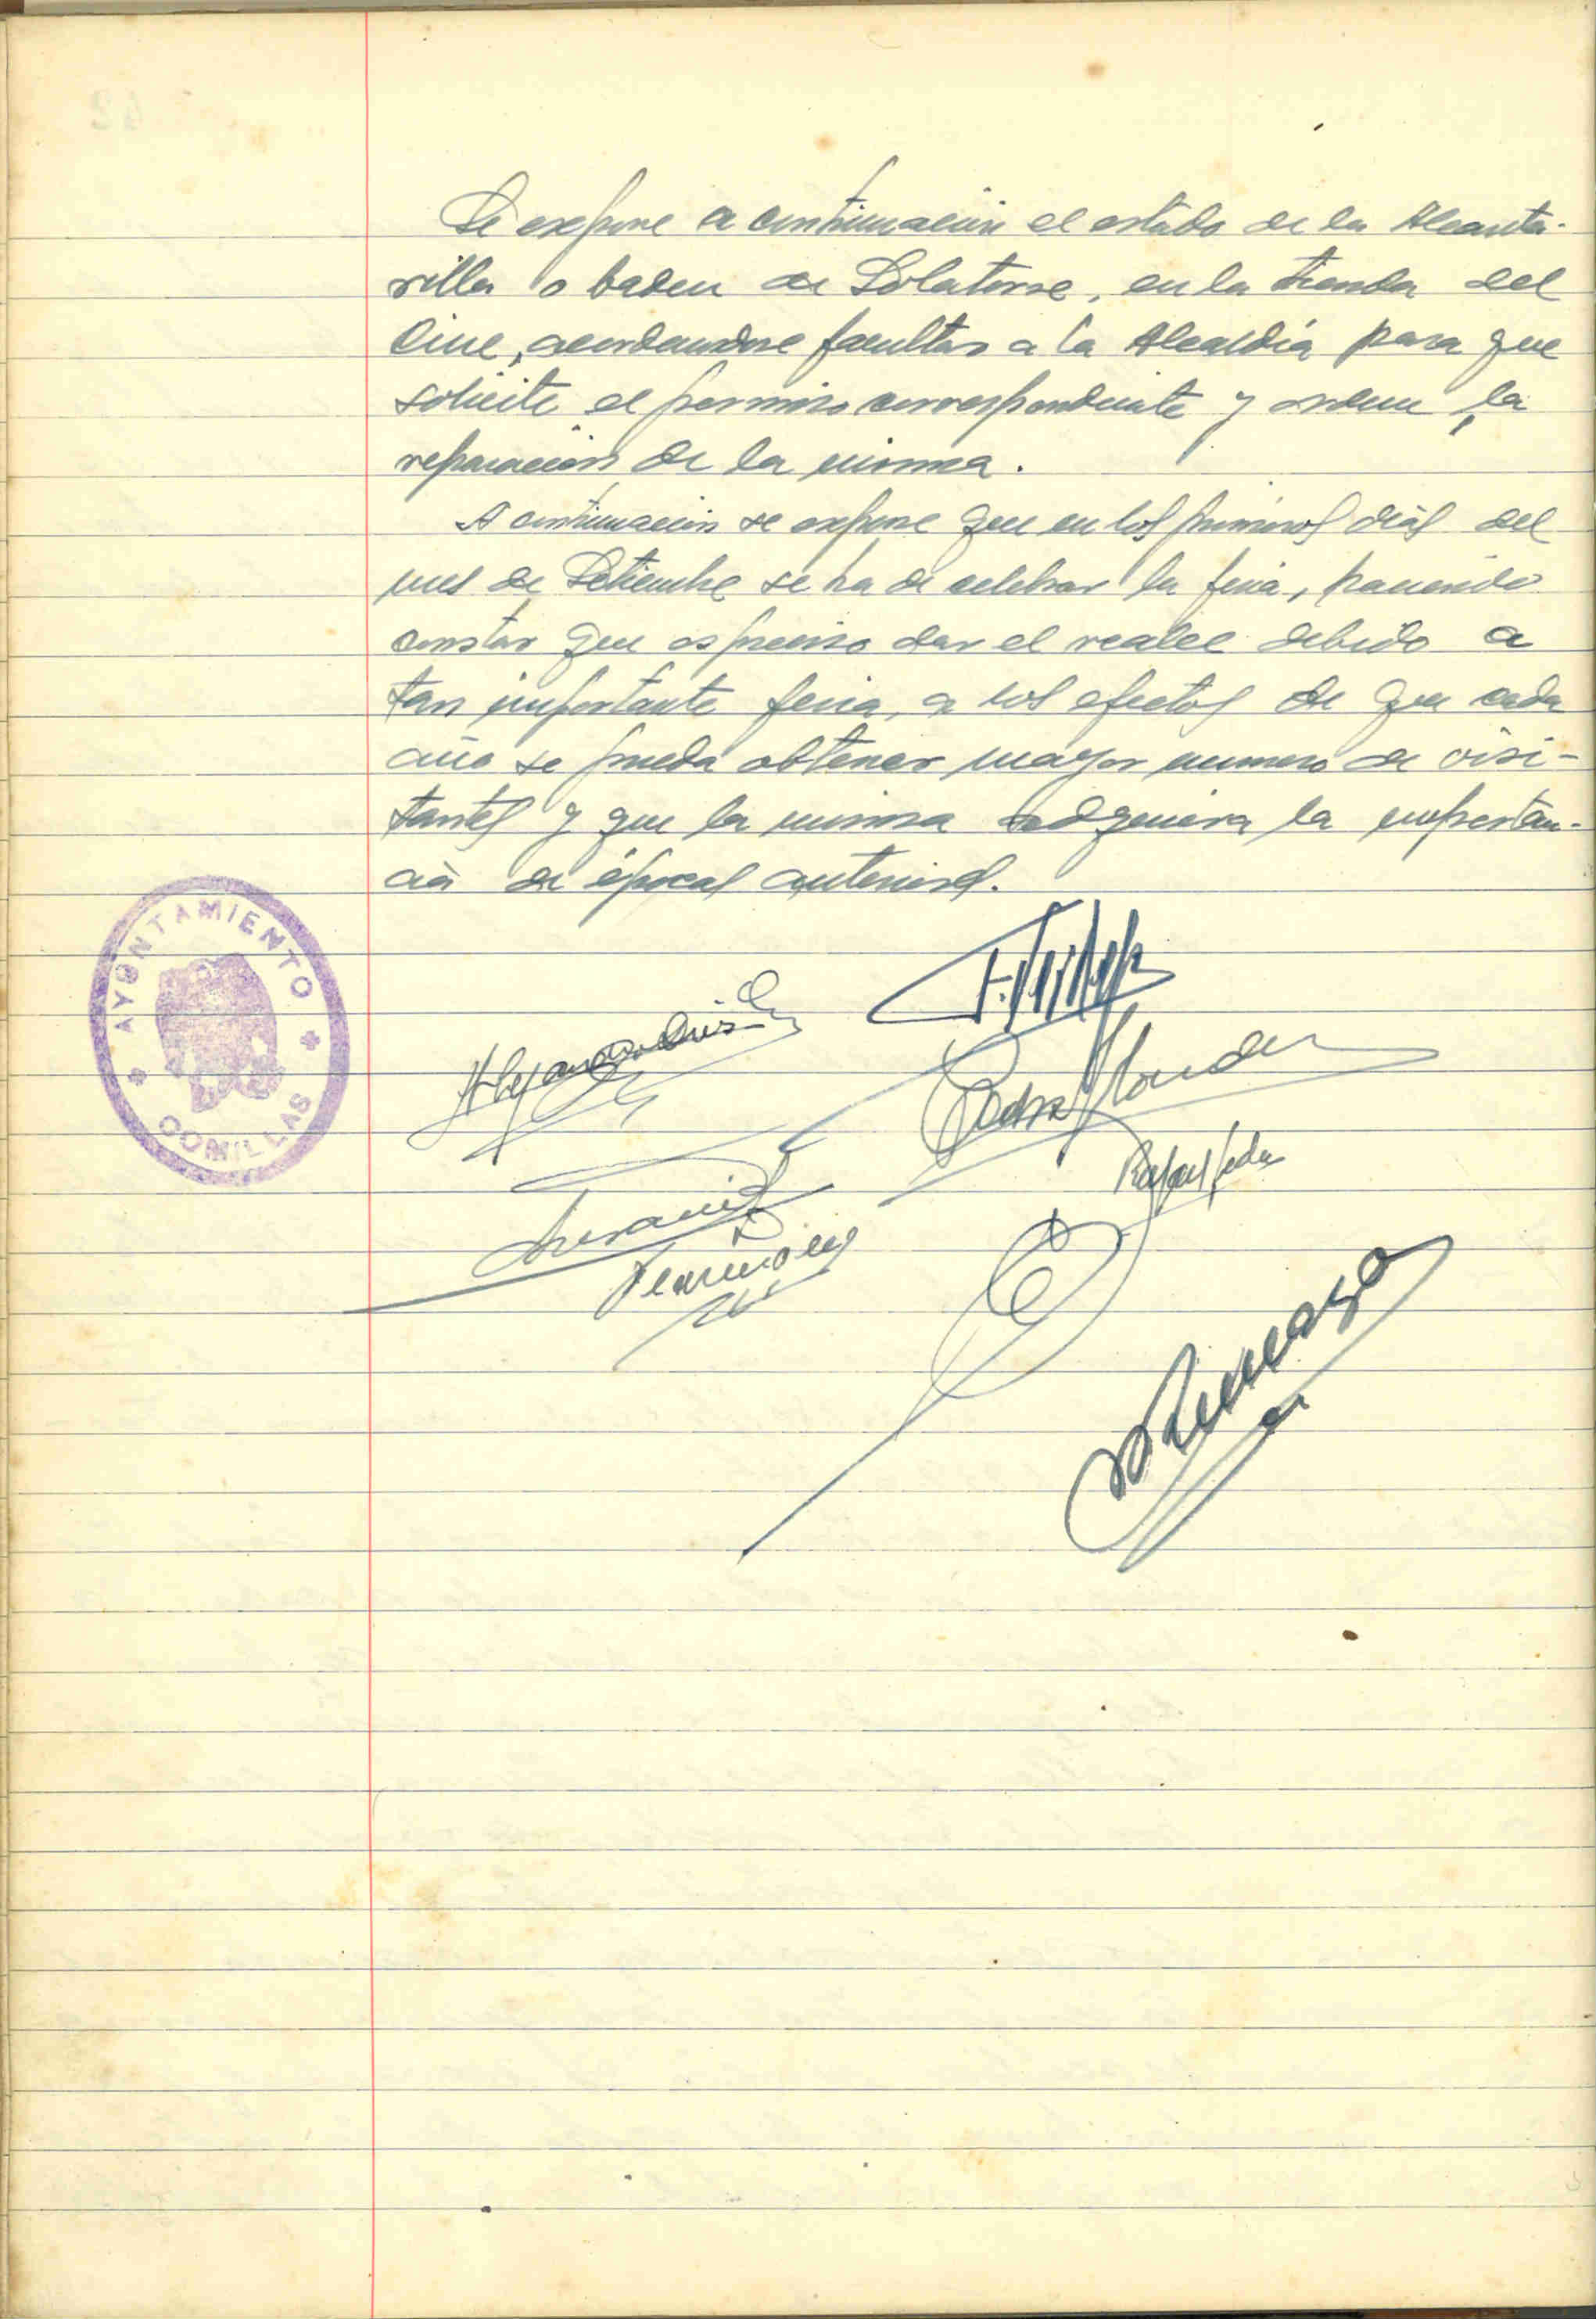 Se expone a continuación el estado de la Alcanta-
rilla o baden de Solatorre, en la tienda del
Cine, acordandose facultar a la Alcaldía para que
solicite el permiso correspondiente y ordene la
reparación de la misma.
A continuación se expone que en los primeros días del
mes de Setiembre se ha de celebrar la feria, haciendo
constar que es preciso dar el realce debido a
tan importante feria, a los efectos de que cada
año se pueda obtener mayor numero de visi-
tantes y que la misma adquiera la importan-
cia de épocas anteriores.
AYUNTAMIENTO
COMILLAS
Alejandro
Pedro
Rafael